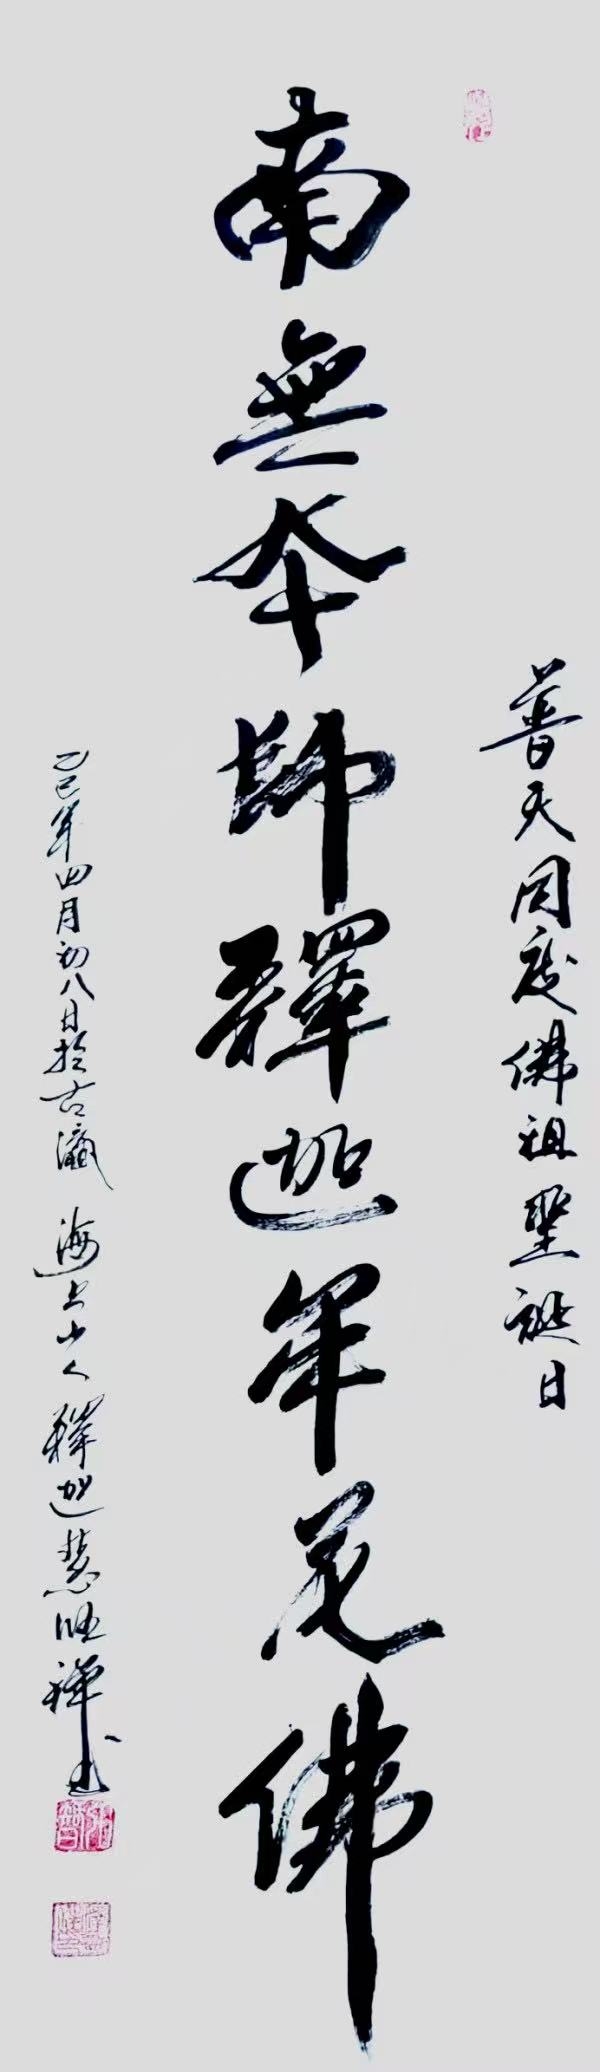 普天同慶佛祖聖誕日
南無本師釋迦牟尼佛
乙巳年四月初八日於古瀛 海上小人 釋迦慧 禪书